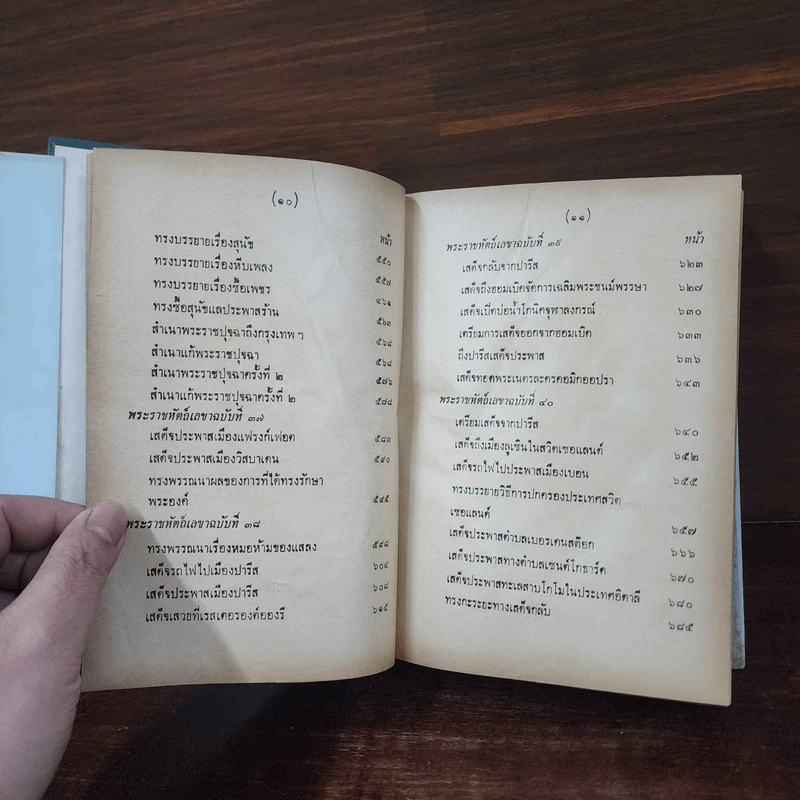 (๑๐)
หน้า
ทรงบรรยายเรื่องสุนัข ๕๕๐
ทรงบรรยายเรื่องหีบเพลง ๕๕๗
ทรงบรรยายเรื่องซื้อเพชร ๔๖๑
ทรงซื้อสุนัขแลประพาสร้าน ๕๖๓
สำเนาพระราชปุจฉาถึงกรุงเทพ ฯ ๕๖๘
สำเนาแก้พระราชปุจฉา ๕๖๘
สำเนาพระราชปุจฉาครั้งที่ ๒ ๕๗๖
สำเนาแก้พระราชปุจฉาครั้งที่ ๒ ๕๗๘
พระราชหัตถ์เลขาฉบับที่ ๓๗
เสด็จประพาสเมืองแฟรงก์เฟอต ๕๘๓
เสด็จประพาสเมืองวิสบาเดน ๕๙๐
ทรงพรรณนาผลของการที่ได้ทรงรักษา
พระองค์ ๕๙๕
พระราชหัตถ์เลขาฉบับที่ ๓๘
ทรงพรรณนาเรื่องหมอห้ามของแสลง ๕๙๘
เสด็จรถไฟไปเมืองปารีส ๖๐๔
เสด็จประพาสเมืองปารีส ๖๐๘
เสด็จเสวยที่เรสเตอรองต์อองรี ๖๑๕
(๑๑)
พระราชหัตถ์เลขาฉบับที่ ๓๙ หน้า
เสด็จกลับจากปารีส ๖๒๓
เสด็จถึงฮอมเบิคจัดการเฉลิมพระชนม์พรรษา ๖๒๗
เสด็จเปิดบ่อน้ำโกนิคจุฬาลงกรณ์ ๖๓๐
เตรียมการเสด็จออกจากฮอมเบิค ๖๓๓
ถึงปารีสเสด็จประพาส ๖๓๖
เสด็จทอดพระเนตรละครคอมิกออปรา ๖๔๓
พระราชหัตถ์เลขาฉบับที่ ๔๐
เตรียมเสด็จจากปารีส ๖๔๐
เสด็จถึงเมืองลูเซินในสวิตเซอแลนด์ ๖๕๒
เสด็จรถไฟไปประพาสเมืองเบอน ๖๕๕
ทรงบรรยายวิธีการปกครองประเทศสวิต
เซอแลนด์ ๖๕๗
เสด็จประพาสตำบลเบอรเคนสต๊อก ๖๖๖
เสด็จประพาสทางตำบลเซนต์โกธาร์ด ๖๗๐
เสด็จประพาสทะเลสาบโกโมในประเทศอิตาลี ๖๘๐
ทรงกะระยะทางเสด็จกลับ ๖๘๕